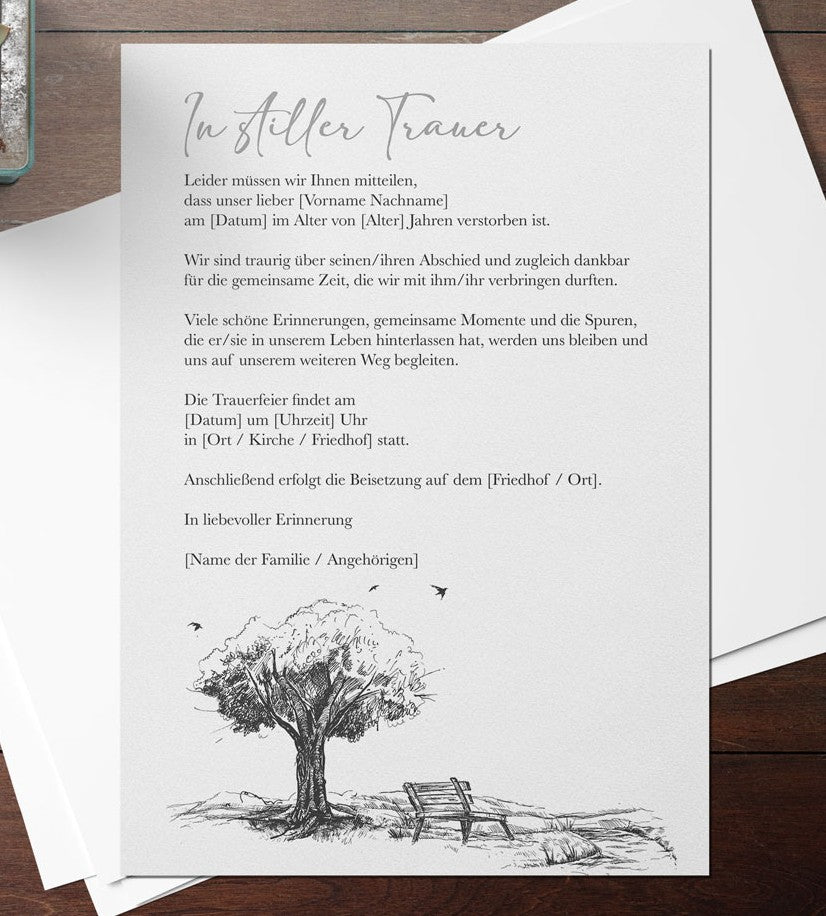 In stiller Trauer
Leider müssen wir Ihnen mitteilen,
dass unser lieber [Vorname Nachname]
am [Datum] im Alter von [Alter] Jahren verstorben ist.
Wir sind traurig über seinen/ihren Abschied und zugleich dankbar
für die gemeinsame Zeit, die wir mit ihm/ihr verbringen durften.
Viele schöne Erinnerungen, gemeinsame Momente und die Spuren,
die er/sie in unserem Leben hinterlassen hat, werden uns bleiben und
uns auf unserem weiteren Weg begleiten.
Die Trauerfeier findet am
[Datum] um [Uhrzeit] Uhr
in [Ort / Kirche / Friedhof] statt.
Anschließend erfolgt die Beisetzung auf dem [Friedhof / Ort].
In liebevoller Erinnerung
[Name der Familie / Angehörigen]